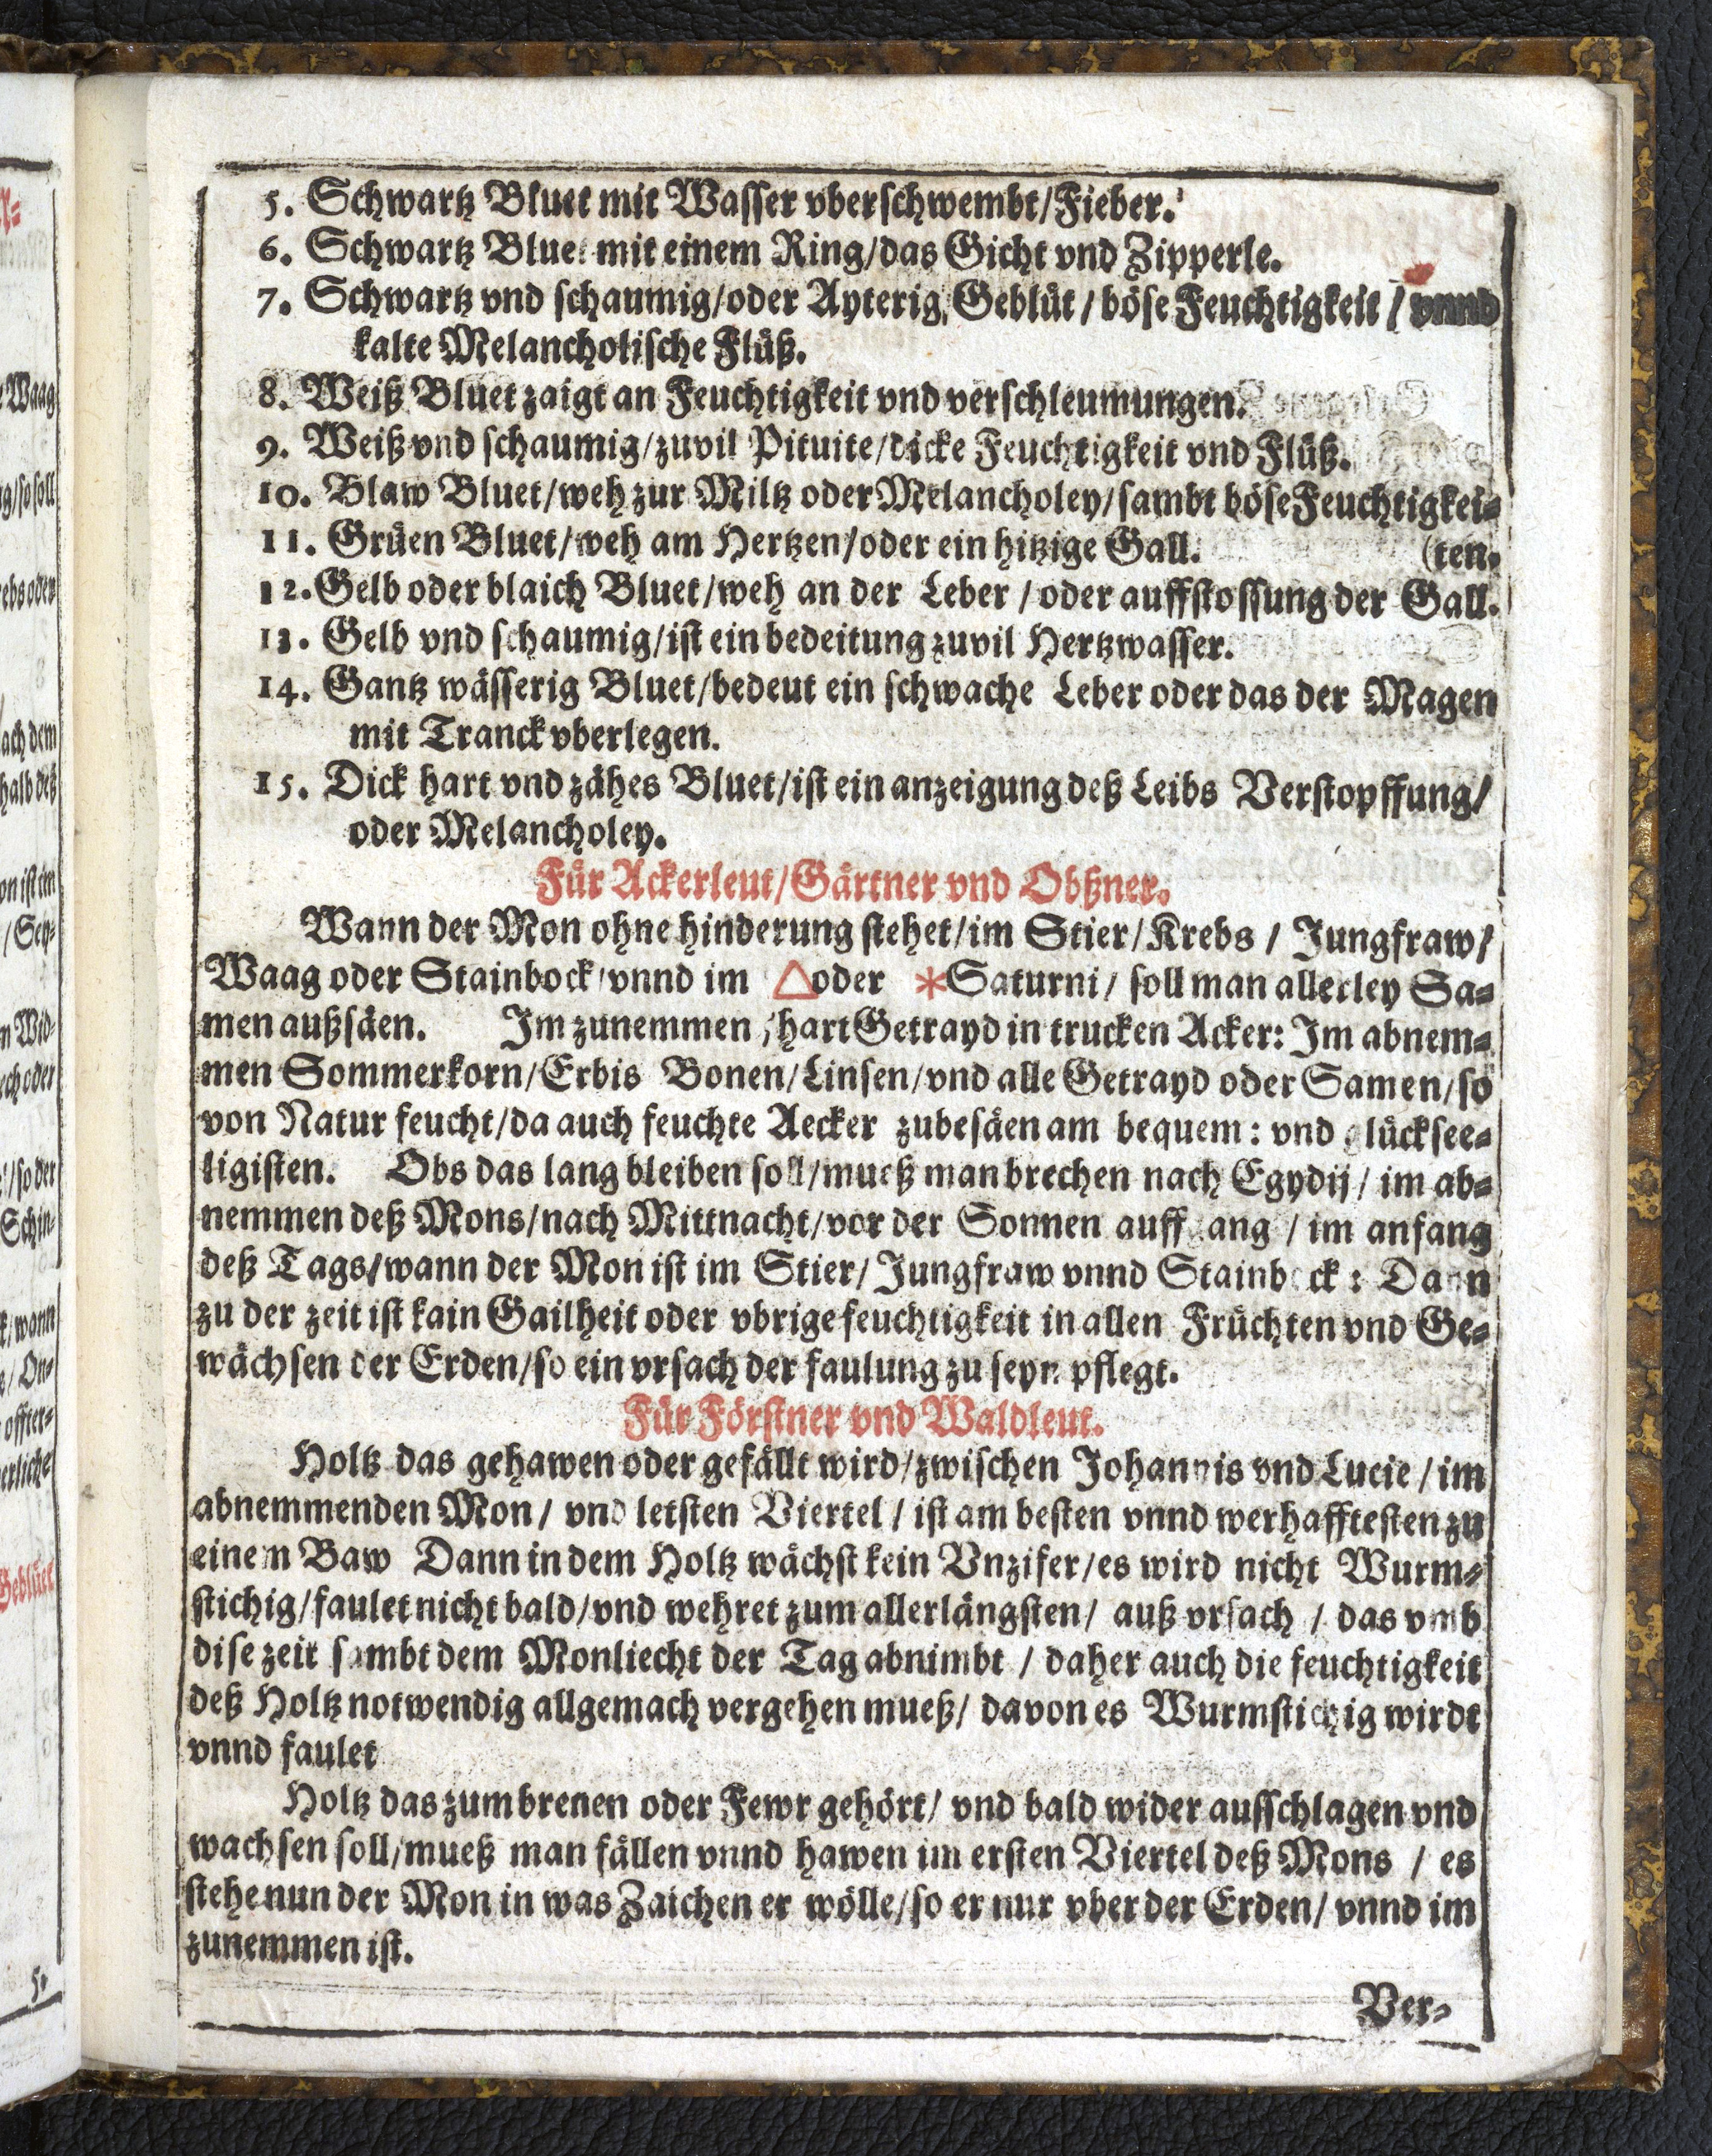 5. Schwartz Bluet mit Wasser vberschwembt/Fieber.
6. Schwartz Bluet mit einem Ring/das Gicht vnd Zipperle.
7. Schwartz vnd schaumig/oder Ayterig Geblüt/böse Feuchtigkeit/vnnd
kalte Melancholische Flüß.
8. Weiß Bluet zaigt an Feuchtigkeit vnd verschleumungen.
9. Weiß vnd schaumig/zuvil Pituite/dicke Feuchtigkeit vnd Flüß.
10. Blaw Bluet/weh zur Miltz oder Melancholey/sambt böse Feuchtigkei-
11. Grüen Bluet/weh am Hertzen/oder ein hitzige Gall. (ten.
12. Gelb oder blaich Bluet/weh an der Leber/oder auffstossung der Gall.
13. Gelb vnd schaumig/ist ein bedeitung zuvil Hertzwasser.
14. Gantz wässerig Bluet/bedeut ein schwache Leber oder das der Magen
mit Tranck vberlegen.
15. Dick hart vnd zähes Bluet/ist ein anzeigung deß Leibs Verstopffung/
oder Melancholey.
Für Ackerleut/Gärtner vnd Obßner.
Wann der Mon ohne hinderung stehet/im Stier/Krebs/Jungfraw/
Waag oder Stainbock/vnnd im △ oder * Saturni/soll man allerley Sa-
men außsäen. Im zunemmen/hart Getrayd in trucken Acker: Im abnem-
men Sommerkorn/Erbis Bonen/Linsen/vnd alle Getrayd oder Samen/so
von Natur feucht/da auch feuchte Aecker zubesäen am bequem: vnd glücksee-
ligisten. Obs das lang bleiben soll/mueß man brechen nach Egydij/im ab-
nemmen deß Mons/nach Mittnacht/vor der Sonnen auffgang/im anfang
deß Tags/wann der Mon ist im Stier/Jungfraw vnnd Stainbock: Dann
zu der zeit ist kain Gailheit oder vbrige feuchtigkeit in allen Früchten vnd Ge-
wächsen der Erden/so ein vrsach der faulung zu seyn pflegt.
Für Förstner vnd Waldleut.
Holtz das gehawen oder gefällt wird/zwischen Johannis vnd Lucie/im
abnemmenden Mon/vnd letsten Viertel/ist am besten vnnd werhafftesten zu
einem Baw Dann in dem Holtz wächst kein Vnzifer/es wird nicht Wurm-
stichig/faulet nicht bald/vnd wehret zum allerlängsten/auß vrsach/das vmb
dise zeit sambt dem Monliecht der Tag abnimbt/daher auch die feuchtigkeit
deß Holtz notwendig allgemach vergehen mueß/davon es Wurmstichig wirdt
vnnd faulet
Holtz das zum brenen oder Fewr gehört/vnd bald wider ausschlagen vnd
wachsen soll/mueß man fällen vnnd hawen im ersten Viertel deß Mons/es
stehe nun der Mon in was Zaichen er wölle/so er nur vber der Erden/vnnd im
zunemmen ist.
Ver-